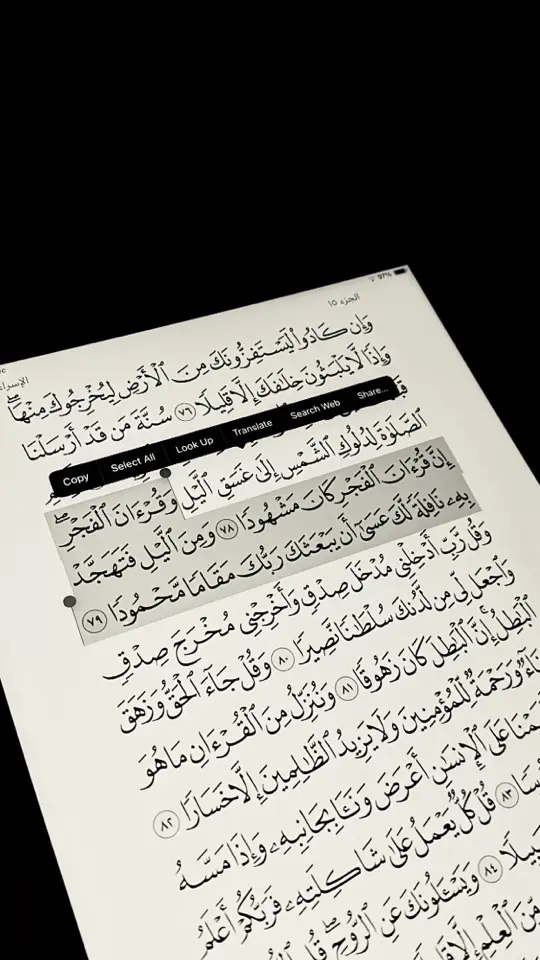 97%
الجزء ١٥
الإسراء
وَإِن كَادُواْ لَيَسْتَفِزُّونَكَ مِنَ ٱلْأَرْضِ لِيُخْرِجُوكَ مِنْهَاۖ
وَإِذًا لَّا يَلْبَثُونَ خِلَٰفَكَ إِلَّا قَلِيلًا ٧٦ سُنَّةَ مَن قَدْ أَرْسَلْنَا
Copy Select All Look Up Translate Search Web Share...
ٱلصَّلَوٰةَ لِدُلُوكِ ٱلشَّمْسِ إِلَىٰ غَسَقِ ٱلَّيْلِ وَقُرْءَانَ ٱلْفَجْرِۖ
إِنَّ قُرْءَانَ ٱلْفَجْرِ كَانَ مَشْهُودًا ٧٨ وَمِنَ ٱلَّيْلِ فَتَهَجَّدْ
بِهِۦ نَافِلَةً لَّكَ عَسَىٰٓ أَن يَبْعَثَكَ رَبُّكَ مَقَامًا مَّحْمُودًا ٧٩
وَقُل رَّبِّ أَدْخِلْنِي مُدْخَلَ صِدْقٍ وَأَخْرِجْنِي مُخْرَجَ صِدْقٍ
وَٱجْعَل لِّي مِن لَّدُنكَ سُلْطَٰنًا نَّصِيرًا ٨٠ وَقُلْ جَآءَ ٱلْحَقُّ وَزَهَقَ
ٱلْبَٰطِلُۚ إِنَّ ٱلْبَٰطِلَ كَانَ زَهُوقًا ٨١ وَنُنَزِّلُ مِنَ ٱلْقُرْءَانِ مَا هُوَ
وَرَحْمَةٌ لِّلْمُؤْمِنِينَ وَلَا يَزِيدُ ٱلظَّٰلِمِينَ إِلَّا خَسَارًا ٨٢
عَلَى ٱلْإِنسَٰنِ أَعْرَضَ وَنَـَٔا بِجَانِبِهِۦ وَإِذَا مَسَّهُ
٨٣ قُلْ كُلٌّ يَعْمَلُ عَلَىٰ شَاكِلَتِهِۦ فَرَبُّكُمْ أَعْلَمُ
٨٤ وَيَسْـَٔلُونَكَ عَنِ ٱلرُّوحِۖ قُلِ
مِّنَ ٱلْعِلْمِ إِلَّا